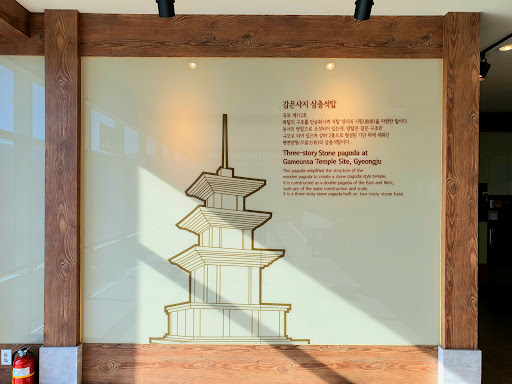 감은사지 삼층석탑
국보 제112호
목탑의 구조를 단순화시켜 석탑 양식의 시원(始原)을 마련한 탑이다.
동서의 쌍탑으로 조성되어 있는데, 양탑은 같은 구조와
규모로 되어 있으며 상하 2층으로 형성된 기단 위에 세워진
평면방형(平面方形)의 삼층석탑이다.
Three-story Stone pagoda at
Gameunsa Temple Site, Gyeongju
This pagoda simplified the structure of the
wooden pagoda to create a stone pagoda style temple.
It is constructed as a double pagoda of the East and West,
both are of the same construction and scale.
It is a three-story stone pagoda built on two-story stone base.